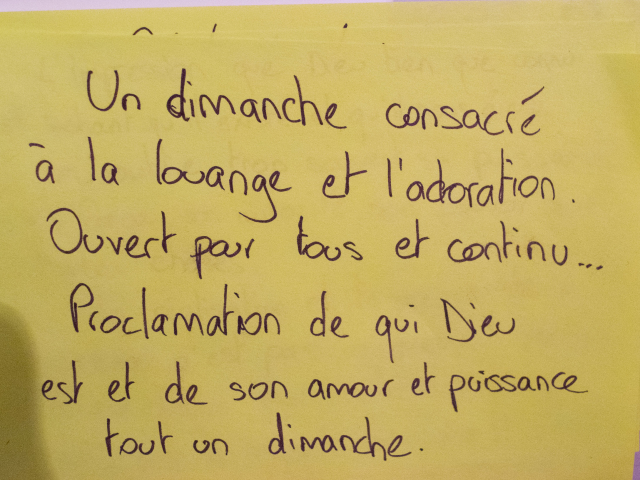 Un dimanche consacré
à la louange et l'adoration.
Ouvert pour tous et continu...
Proclamation de qui Dieu
est et de son amour et puissance
tout un dimanche.